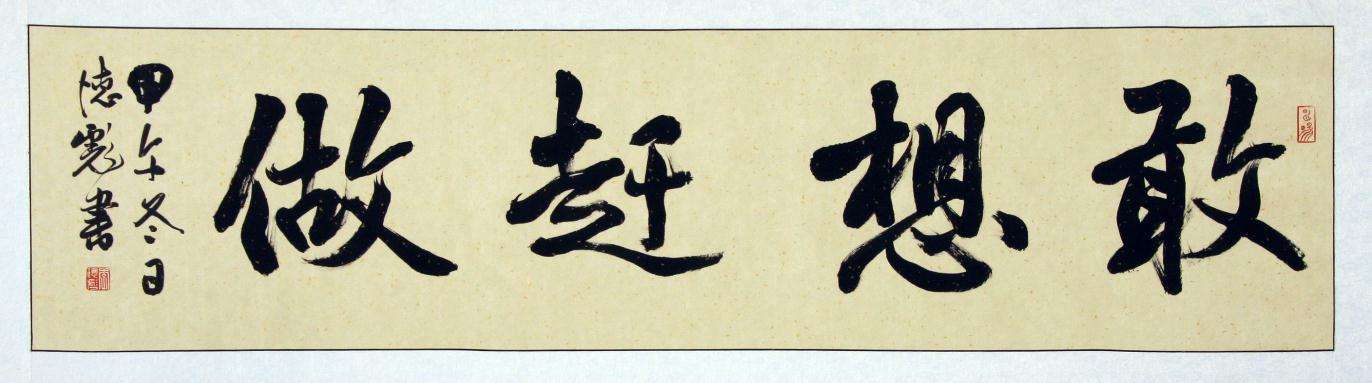 敢想赶做
甲午冬日
德彪書